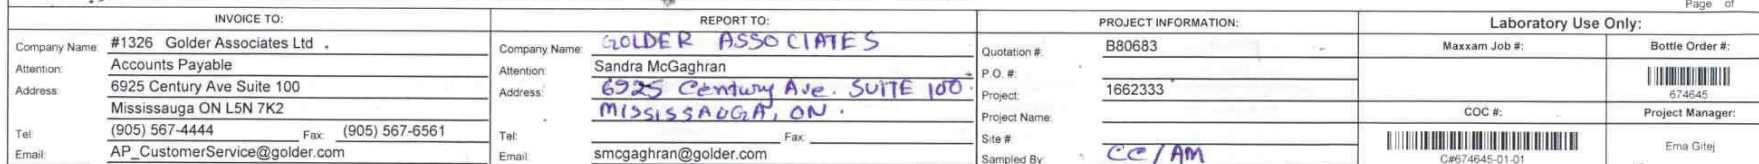 Page of
INVOICE TO:
Company Name: #1326 Golder Associates Ltd .
Attention: Accounts Payable
Address: 6925 Century Ave Suite 100
Mississauga ON L5N 7K2
Tel: (905) 567-4444 Fax: (905) 567-6561
Email: AP_CustomerService@golder.com
REPORT TO:
Company Name: GOLDER ASSOCIATES
Attention: Sandra McGaghran
Address: 6925 Century Ave. SUITE 100.
MISSISSAUGA, ON.
Tel: Fax:
Email: smcgaghran@golder.com
PROJECT INFORMATION:
Quotation #: B80683
P.O. #:
Project: 1662333
Project Name:
Site #
Sampled By: CC/AM
Laboratory Use Only:
Maxxam Job #: Bottle Order #:
674645
COC #: Project Manager:
C#674645-01-01 Ema Gitej